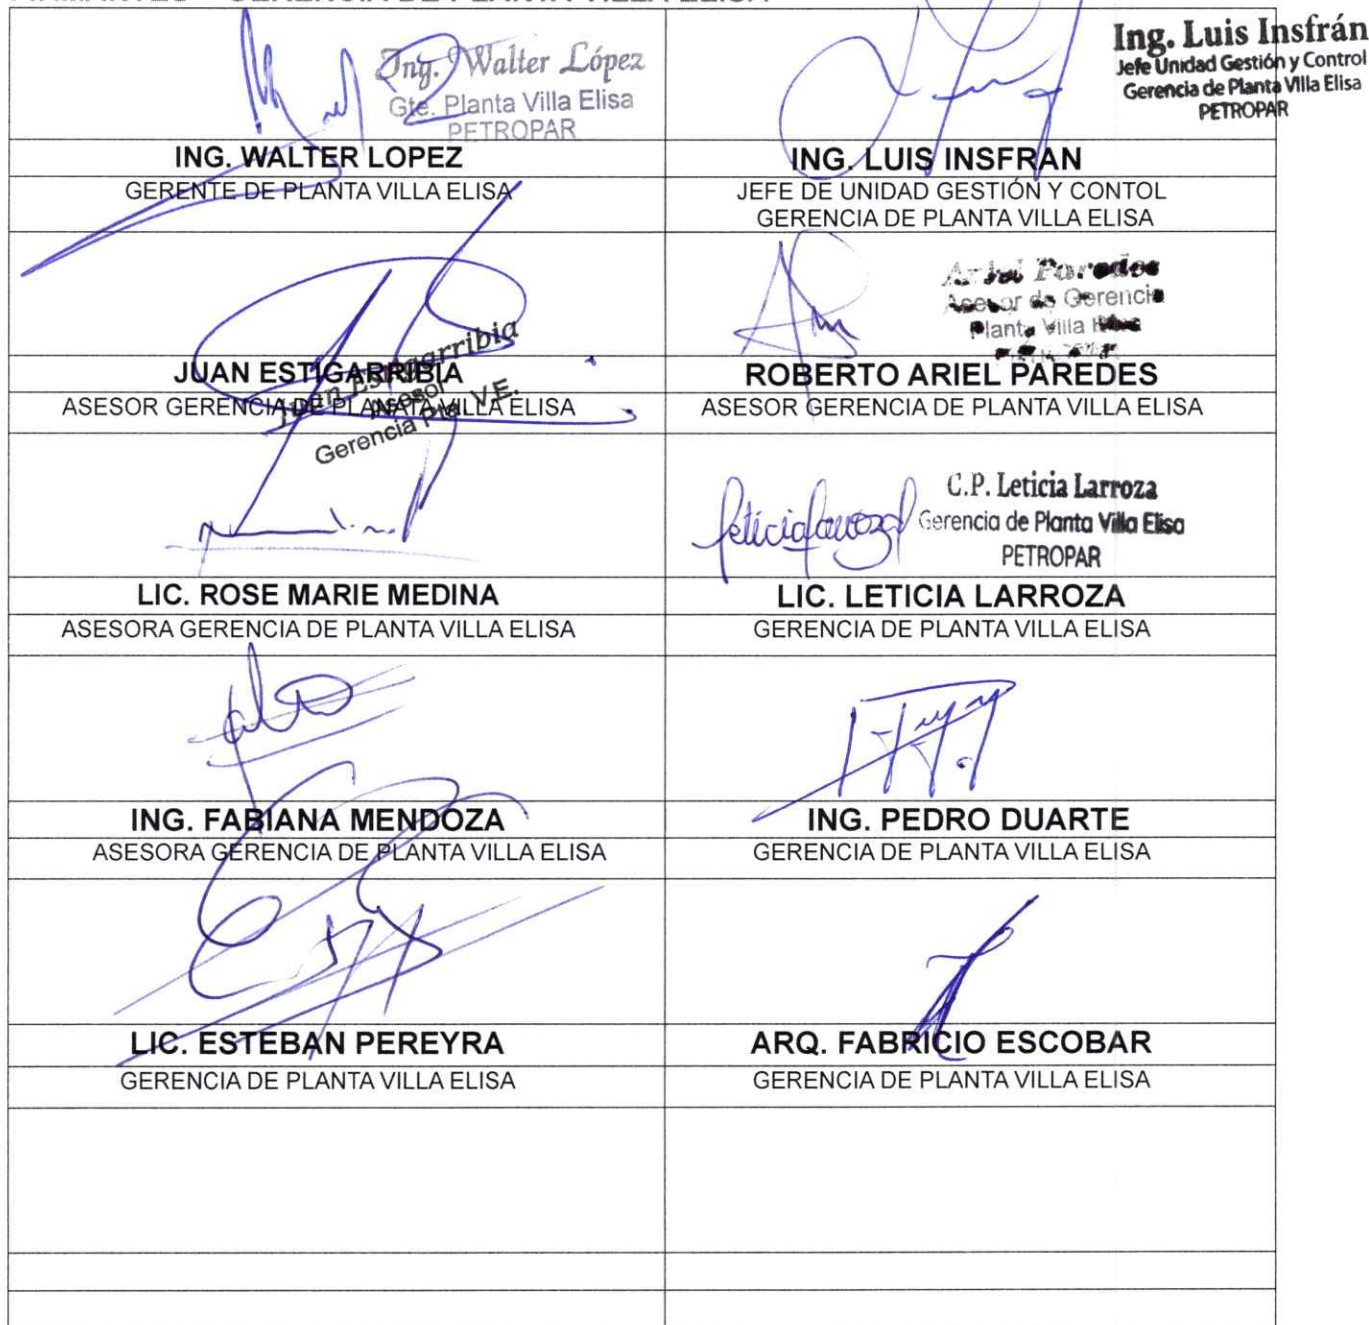 GERENCIA DE PLANTA VILLA ELISA
Ing. Walter López
Gte. Planta Villa Elisa
PETROPAR
Ing. Luis Insfrán
Jefe Unidad Gestión y Control
Gerencia de Planta Villa Elisa
PETROPAR
ING. WALTER LOPEZ
GERENTE DE PLANTA VILLA ELISA
ING. LUIS INSFRAN
JEFE DE UNIDAD GESTIÓN Y CONTOL
GERENCIA DE PLANTA VILLA ELISA
Ariel Paredes
Asesor de Gerencia
Planta Villa
JUAN ESTIGARRIBIA
ASESOR GERENCIA DE PLANATA VILLA ELISA
Juan Estigarribia
Asesor
Gerencia Pta. V.E.
ROBERTO ARIEL PAREDES
ASESOR GERENCIA DE PLANTA VILLA ELISA
leticia larroza
C.P. Leticia Larroza
Gerencia de Planta Villa Elisa
PETROPAR
LIC. ROSE MARIE MEDINA
ASESORA GERENCIA DE PLANTA VILLA ELISA
LIC. LETICIA LARROZA
GERENCIA DE PLANTA VILLA ELISA
ING. FABIANA MENDOZA
ASESORA GERENCIA DE PLANTA VILLA ELISA
ING. PEDRO DUARTE
GERENCIA DE PLANTA VILLA ELISA
LIC. ESTEBAN PEREYRA
GERENCIA DE PLANTA VILLA ELISA
ARQ. FABRICIO ESCOBAR
GERENCIA DE PLANTA VILLA ELISA